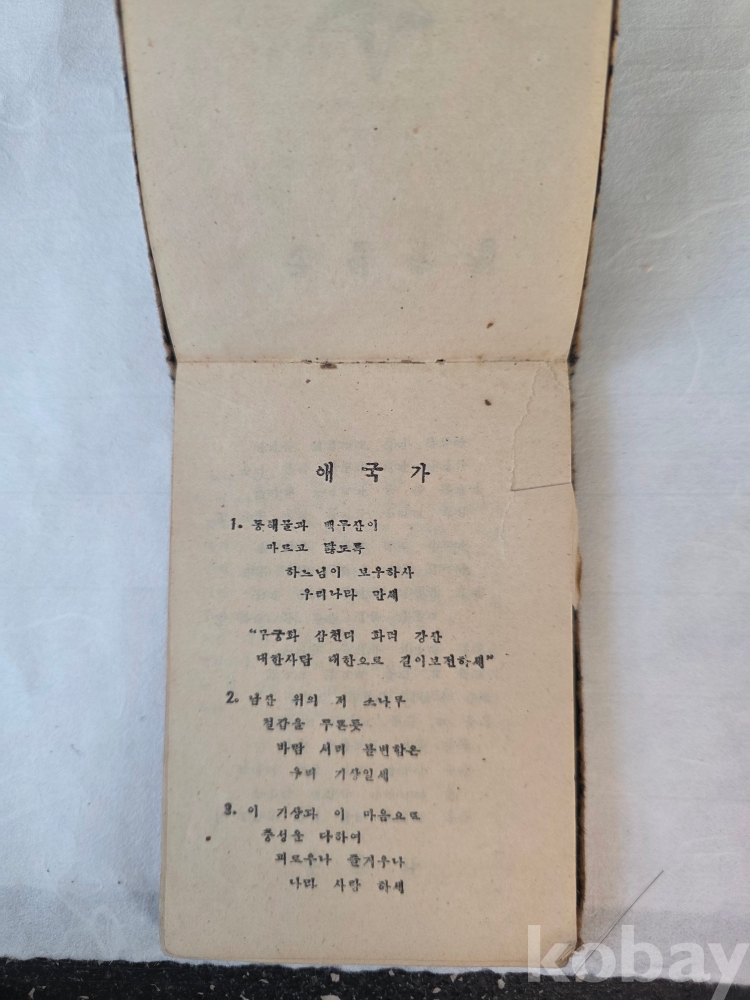 애 국 가
1. 동해물과 백두산이
마르고 닳도록
하느님이 보우하사
우리나라 만세
"무궁화 삼천리 화려 강산
대한사람 대한으로 길이보전하세"
2. 남산 위의 저 소나무
철갑을 두른듯
바람 서리 불변함은
우리 기상일세
3. 이 기상과 이 마음으로
충성을 다하여
괴로우나 즐거우나
나라 사랑 하세
kobay